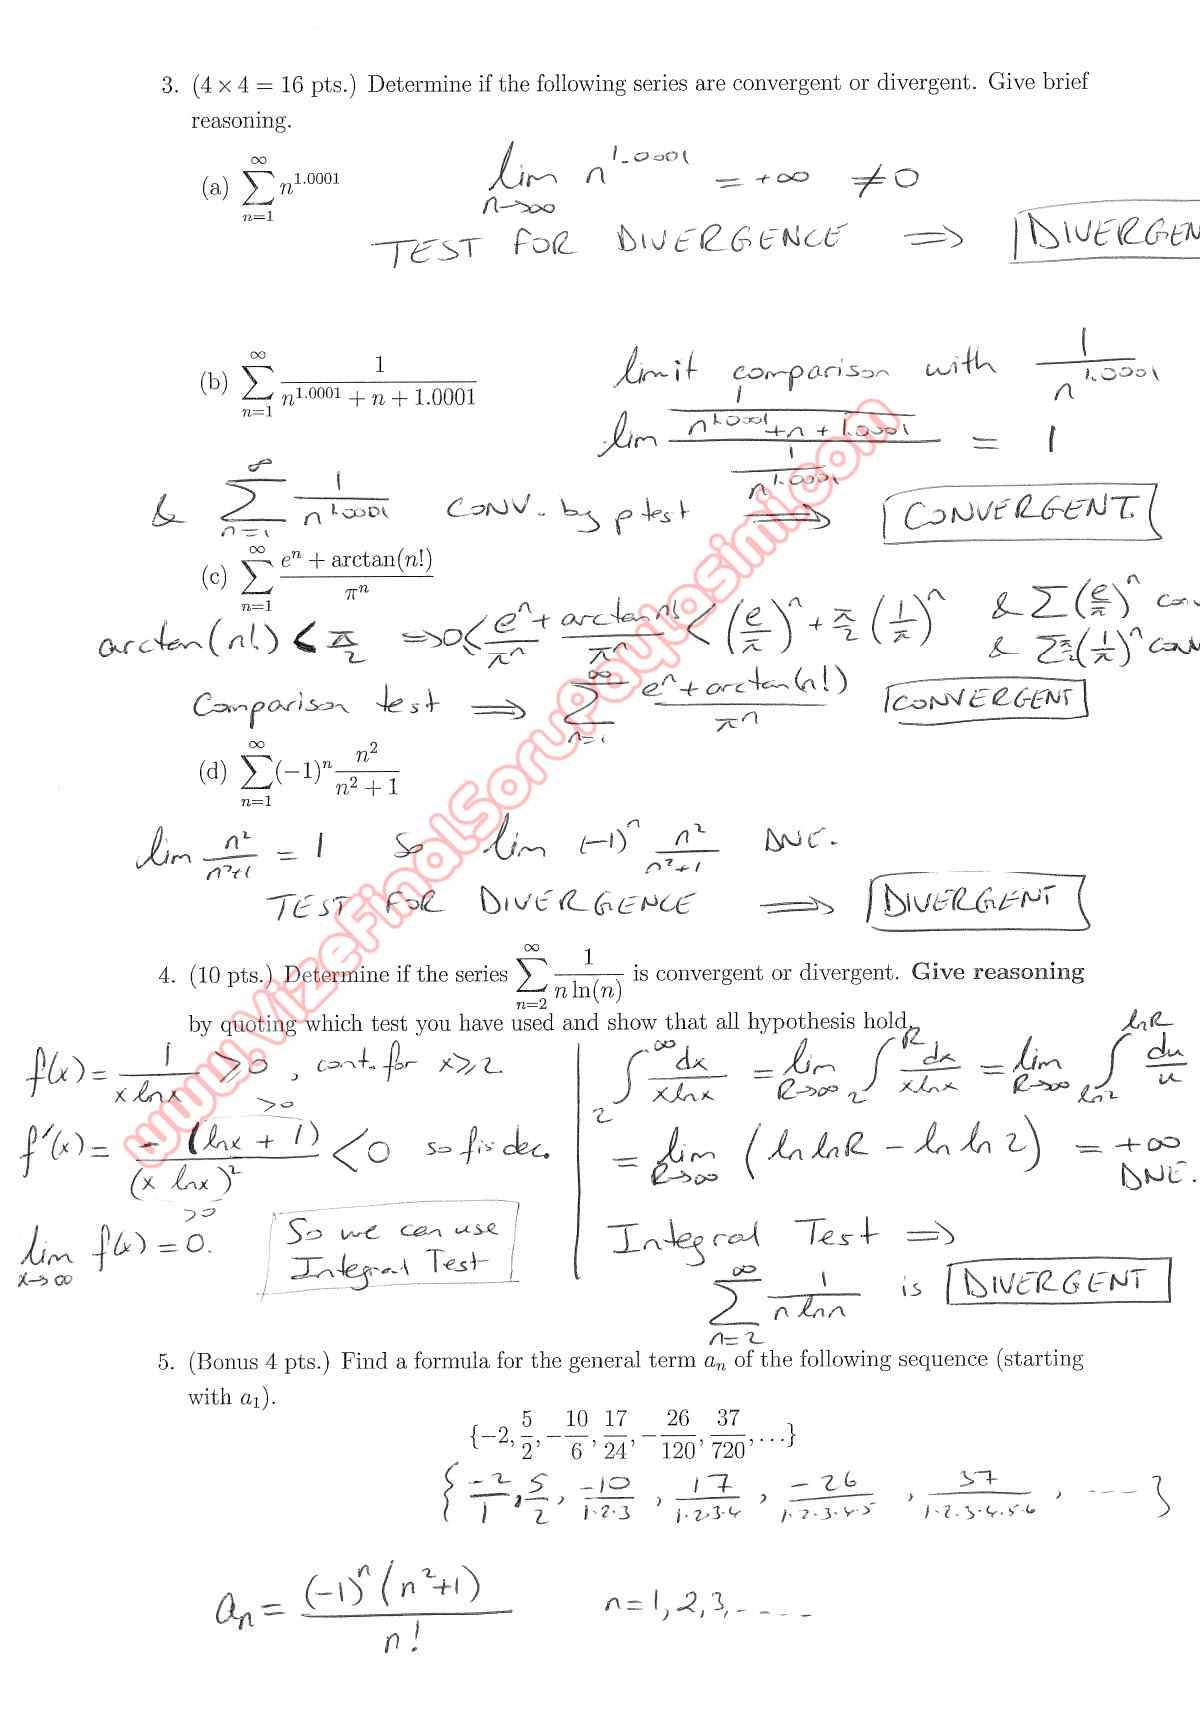 3. (4 × 4 = 16 pts.) Determine if the following series are convergent or divergent. Give brief
reasoning.
(a) ∑_{n=1}^{∞} n^{1.0001}
lim_{n→∞} n^{1.0001} = +∞ ≠ 0
TEST FOR DIVERGENCE ⇒ DIVERGEN
(b) ∑_{n=1}^{∞} 1/(n^{1.0001} + n + 1.0001)
limit comparison with 1/n^{1.0001}
lim (1/(n^{1.0001} + n + 1.0001))/(1/n^{1.0001}) = 1
& ∑_{n=1}^{∞} 1/n^{1.0001} CONV. by p test ⇒ CONVERGENT.
(c) ∑_{n=1}^{∞} (e^n + arctan(n!))/π^n
arctan(n!) < π/2 ⇒ 0 < (e^n + arctan n!)/π^n < (e/π)^n + π/2 (1/π)^n & ∑(e/π)^n con
& ∑ π/2 (1/π)^n conv
Comparison test ⇒ ∑_{n=1}^{∞} (e^n + arctan(n!))/π^n CONVERGENT
(d) ∑_{n=1}^{∞} (−1)^n n²/(n² + 1)
lim n²/(n²+1) = 1 So lim (−1)^n n²/(n²+1) DNE.
TEST FOR DIVERGENCE ⇒ DIVERGENT
4. (10 pts.) Determine if the series ∑_{n=2}^{∞} 1/(n ln(n)) is convergent or divergent. Give reasoning
by quoting which test you have used and show that all hypothesis hold.
f(x) = 1/(x lnx) ≥ 0, cont. for x ≥ 2
f'(x) = −(lnx + 1)/(x lnx)² < 0 so f is dec.
>0
>0
lim_{x→∞} f(x) = 0.
So we can use
Integral Test
∫_2^∞ dx/(x lnx) = lim_{R→∞} ∫_2^R dx/(x lnx) = lim_{R→∞} ∫_{ln2}^{lnR} du/u
= lim_{R→∞} (ln lnR − ln ln 2) = +∞
DNE.
Integral Test ⇒
∑_{n=2}^{∞} 1/(n ln n) is DIVERGENT
5. (Bonus 4 pts.) Find a formula for the general term a_n of the following sequence (starting
with a_1).
{−2, 5/2, −10/6, 17/24, −26/120, 37/720, ...}
{−2/1, 5/2, −10/(1·2·3), 17/(1·2·3·4), −26/(1·2·3·4·5), 37/(1·2·3·4·5·6), ----}
a_n = (−1)^n (n²+1)/n! n = 1, 2, 3, ----
www.VizeFinalSoru.Paylasimi.com